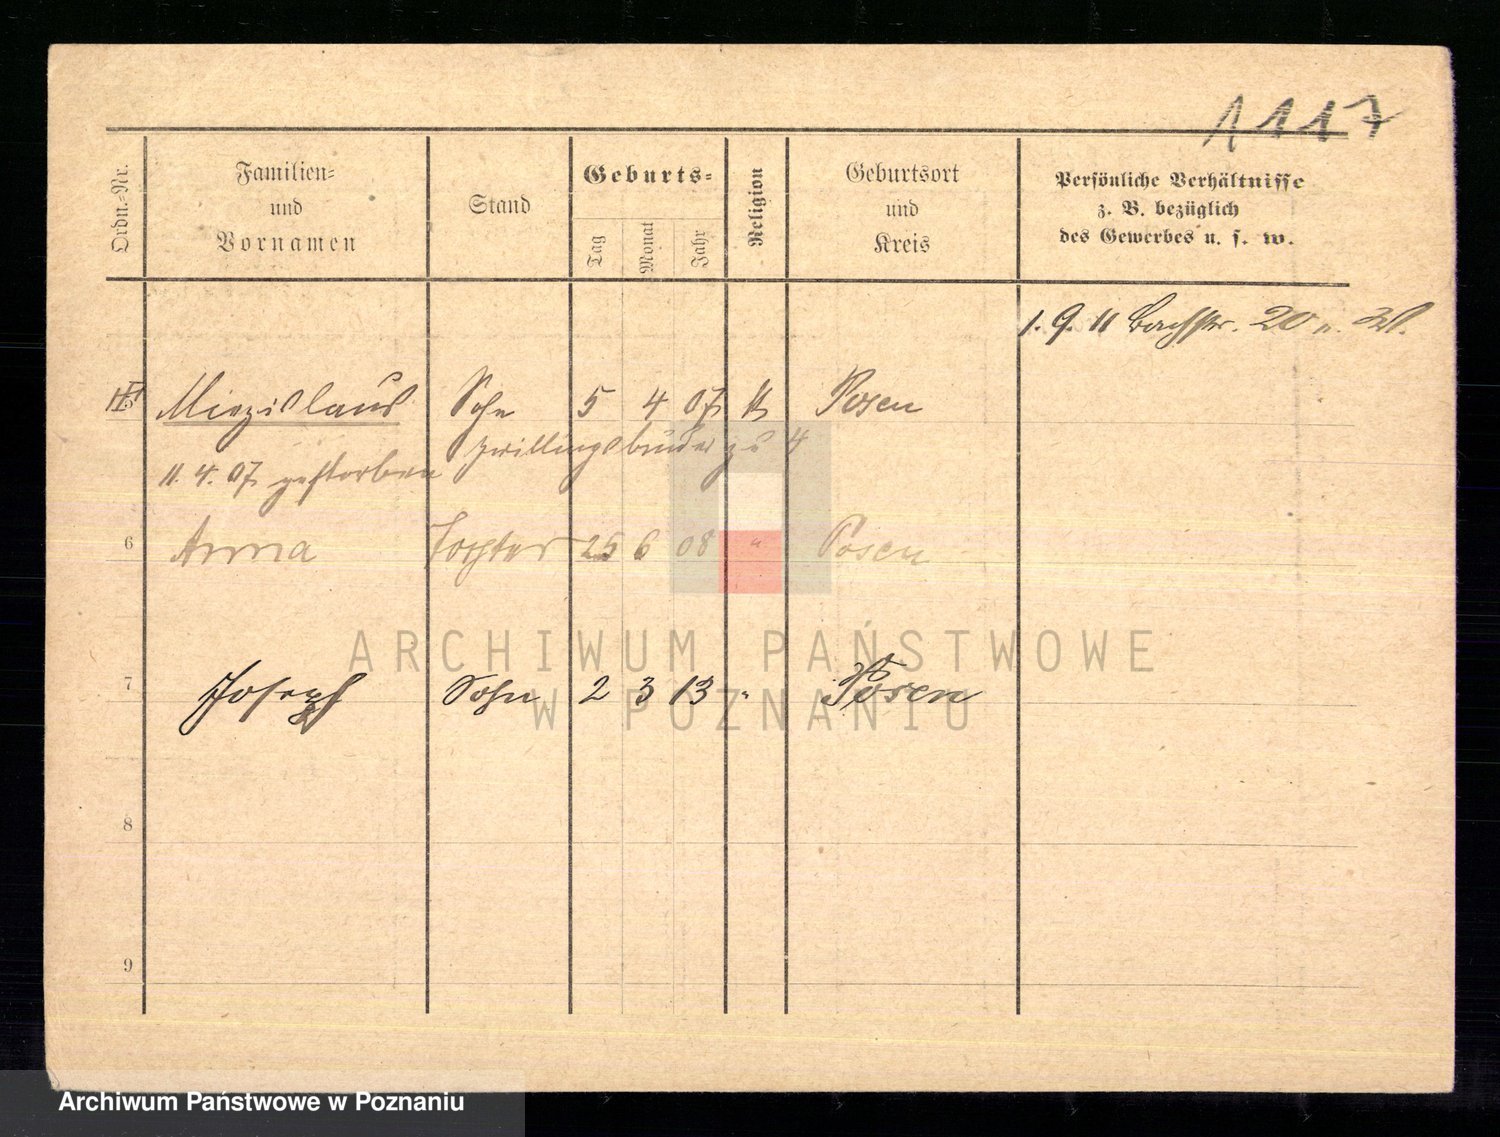 1117
Ordn.-Nr.
Familien-
und
Vornamen
Stand
Geburts-
Tag
Monat
Jahr
Religion
Geburtsort
und
Kreis
Persönliche Verhältnisse
z. B. bezüglich
des Gewerbes u. s. w.
1. 9. 11 Bachstr. 20 v.
Miezislaus Sohn 5 4 07 k Posen
Zwillingsbruder zu 4
11. 4. 07 gestorben
6 Anna Tochter 25 6 08 " Posen
7 Joseph Sohn 2 3 13 " Posen
8
9
ARCHIWUM PAŃSTWOWE
W POZNANIU
Archiwum Państwowe w Poznaniu